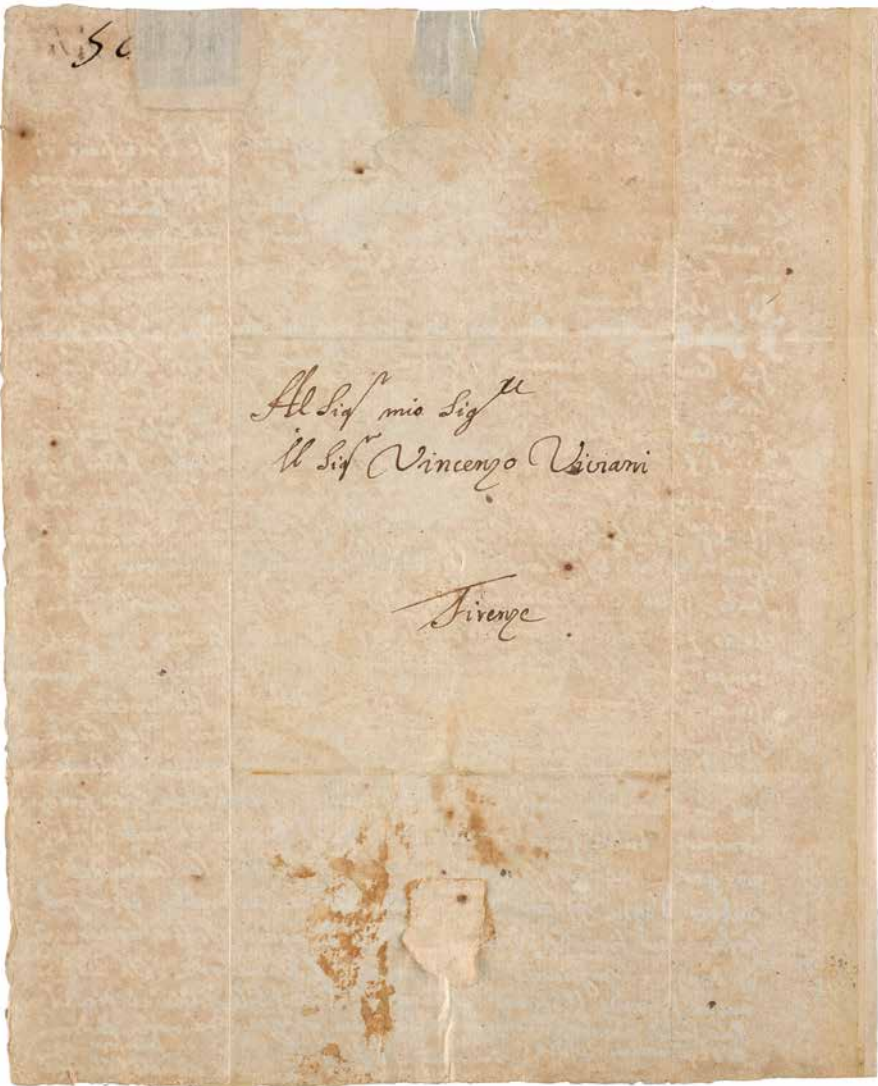 56
Al Sig.r mio Sig.re
Il Sig.r Vincenzo Viviani
Firenze